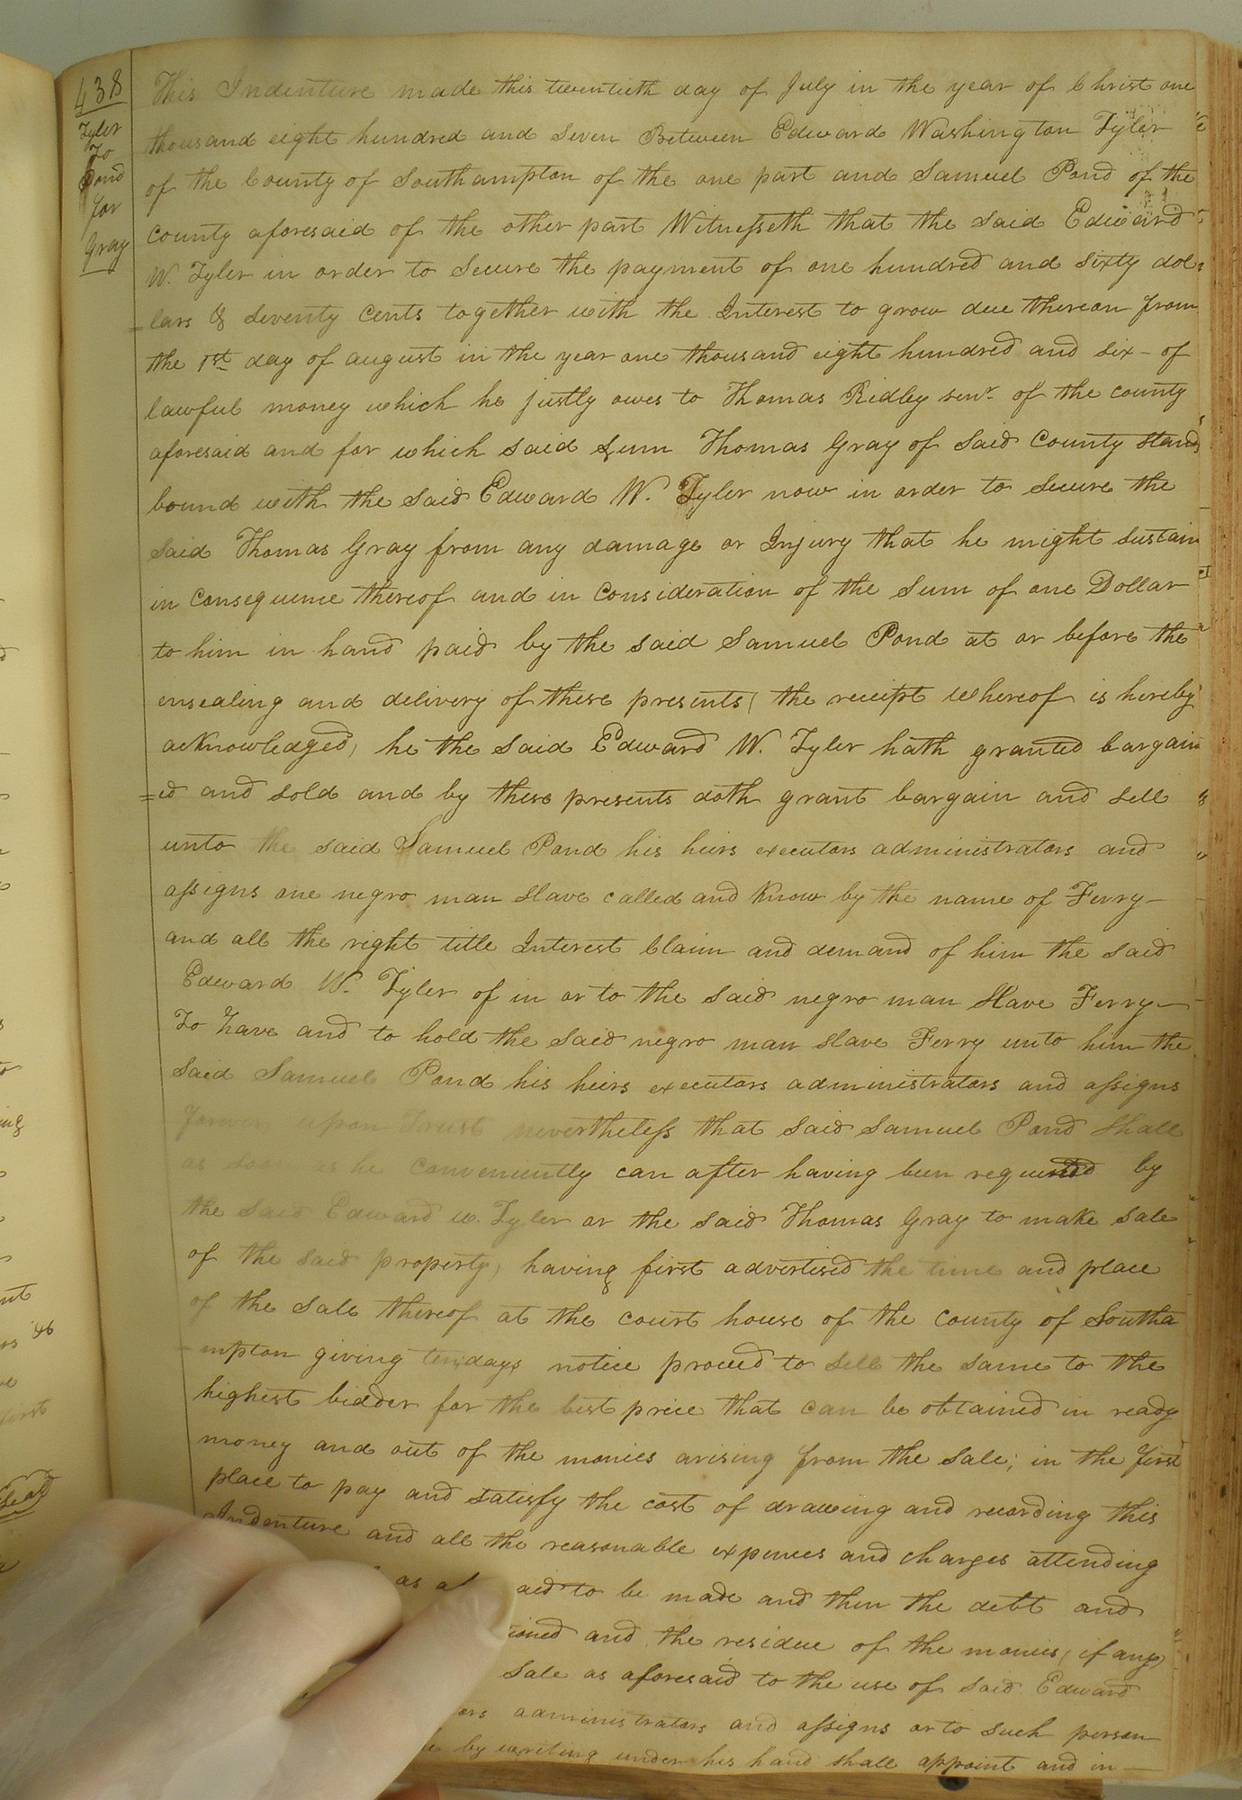 438
Tyler
To
Pond
for
Gray
This Indenture made this twentieth day of July in the year of Christ one
thousand eight hundred and Seven Between Edward Washington Tyler
of the County of Southampton of the one part and Samuel Pond of the
County aforesaid of the other part Witnesseth that the said Edward
W. Tyler in order to Secure the payment of one hundred and sixty dol
=lars & Seventy Cents together with the Interest to grow due thereon from
the 1st day of august in the year one thousand eight hundred and six - of
lawful money which he justly owes to Thomas Ridley senr. of the county
aforesaid and for which said Sum Thomas Gray of Said County stands
bound with the said Edward W. Tyler now in order to Secure the
said Thomas Gray from any damage or Injury that he might sustain
in Consequence thereof and in Consideration of the Sum of one Dollar
to him in hand paid by the said Samuel Pond at or before the
ensealing and delivery of these presents (the receipt whereof is hereby
acknowledged) he the said Edward W. Tyler hath granted bargain
=ed and sold and by these presents doth grant bargain and sell
unto the said Samuel Pond his heirs executors administrators and
assigns one negro man slave called and know by the name of Ferry -
and all the right title Interest Claim and demand of him the said
Edward W. Tyler of in or to the said negro man slave Ferry -
To have and to hold the said negro man slave Ferry unto him the
said Samuel Pond his heirs executors administrators and assigns
forever upon Trust nevertheless that said Samuel Pond shall
as soon as he conveniently can after having been requested by
the said Edward W. Tyler or the said Thomas Gray to make sale
of the said property, having first advertised the time and place
of the sale thereof at the court house of the County of Southa
-mpton giving ten days notice proceed to sell the same to the
highest bidder for the best price that can be obtained in ready
money and out of the monies arising from the sale; in the first
place to pay and satisfy the cost of drawing and recording this
Indenture and all the reasonable expences and charges attending
as to be made and then the debt and
and the residue of the monies (if any)
sale as aforesaid to the use of said Edward
administrators and assigns or to such person
by writing under his hand shall appoint and in -